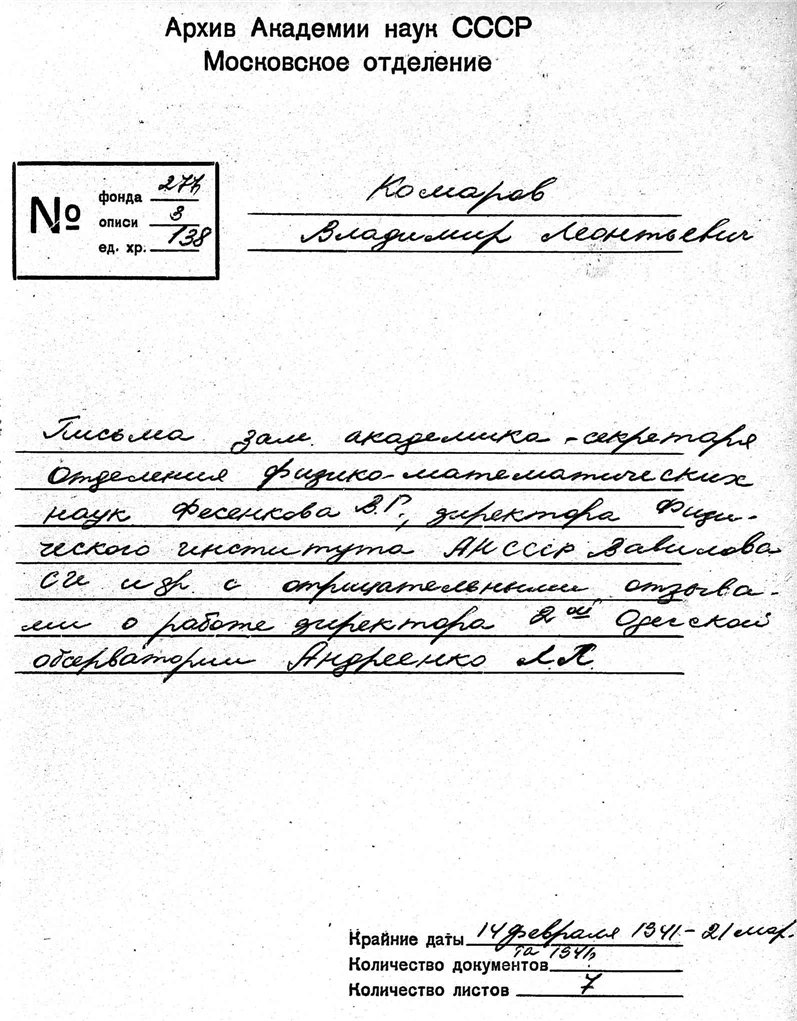 Архив Академии наук СССР
Московское отделение
№
фонда 277
описи 3
ед. хр. 138
Комаров
Владимир Леонтьевич
Письма зам. академика-секретаря
Отделения физико-математических
наук Фесенкова В.Г., директора Физи-
ческого института АН СССР Вавилова
СИ и др. с отрицательными отзыва-
ми о работе директора 2ой Одесской
обсерватории Андреенко Л.Л.
Крайние даты 14 февраля 1941 - 21 мар-
та 1941
Количество документов
Количество листов 7